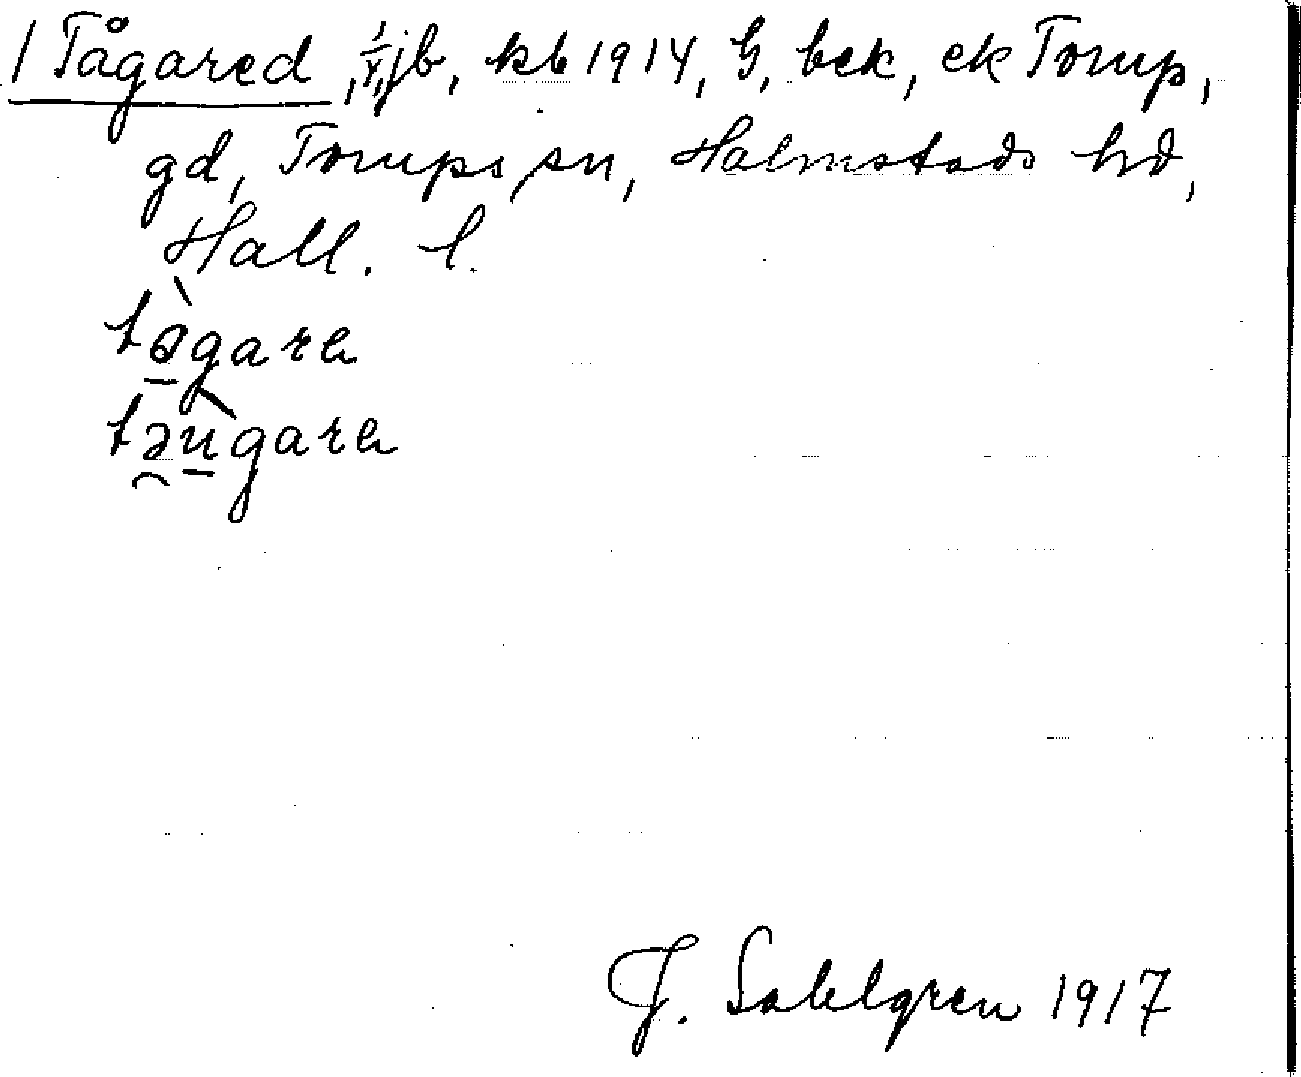 1 Tågared, jb, kb 1914, G, bek, ek Torup,
gd, Torups sn, Halmstads hd,
Hall. l.
tə̠̀gara
tə̯ù̠gara
J. Sahlgren 1917